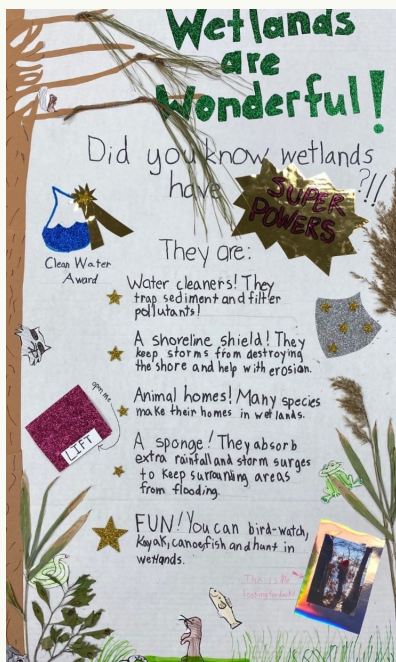 Wetlands
are
Wonderful!
Did you know wetlands
have SUPER POWERS ?!!
Clean Water
Award
They are:
Water cleaners! They
trap sediment and filter
pollutants!
A shoreline shield! They
keep storms from destroying
the shore and help with erosian.
Animal homes! Many species
make their homes in wetlands.
open me
LIFT
A sponge! They absorb
extra rainfall and storm surges
to keep surrounding areas
from flooding.
FUN! You can bird-watch,
kayak, canoe, fish and hunt in
wetlands.
This is Me
looking for ducks!